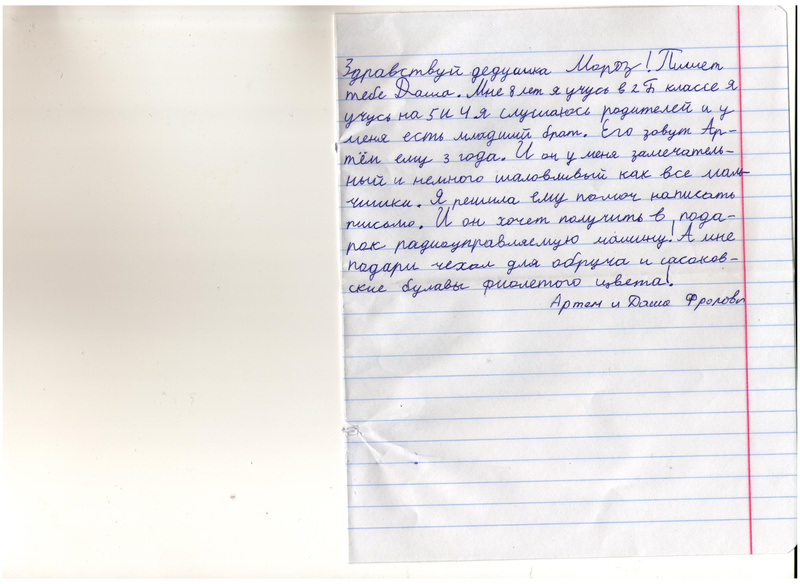 Здравствуй дедушка Мороз! Пишет
тебе Даша. Мне 8 лет я учусь в 2 Б классе я
учусь на 5 и 4 я слушаюсь родителей и у
меня есть младший брат. Его зовут Ар-
тём ему 3 года. И он у меня замечатель-
ный и немного шаловливый как все маль-
чишки. Я решила ему помоч написать
письмо. И он хочет получить в пода-
рок радиоуправляемую машину! А мне
подари чехол для обруча и сасаков-
ские булавы фиолетого цвета!
Артем и Даша Фроловы